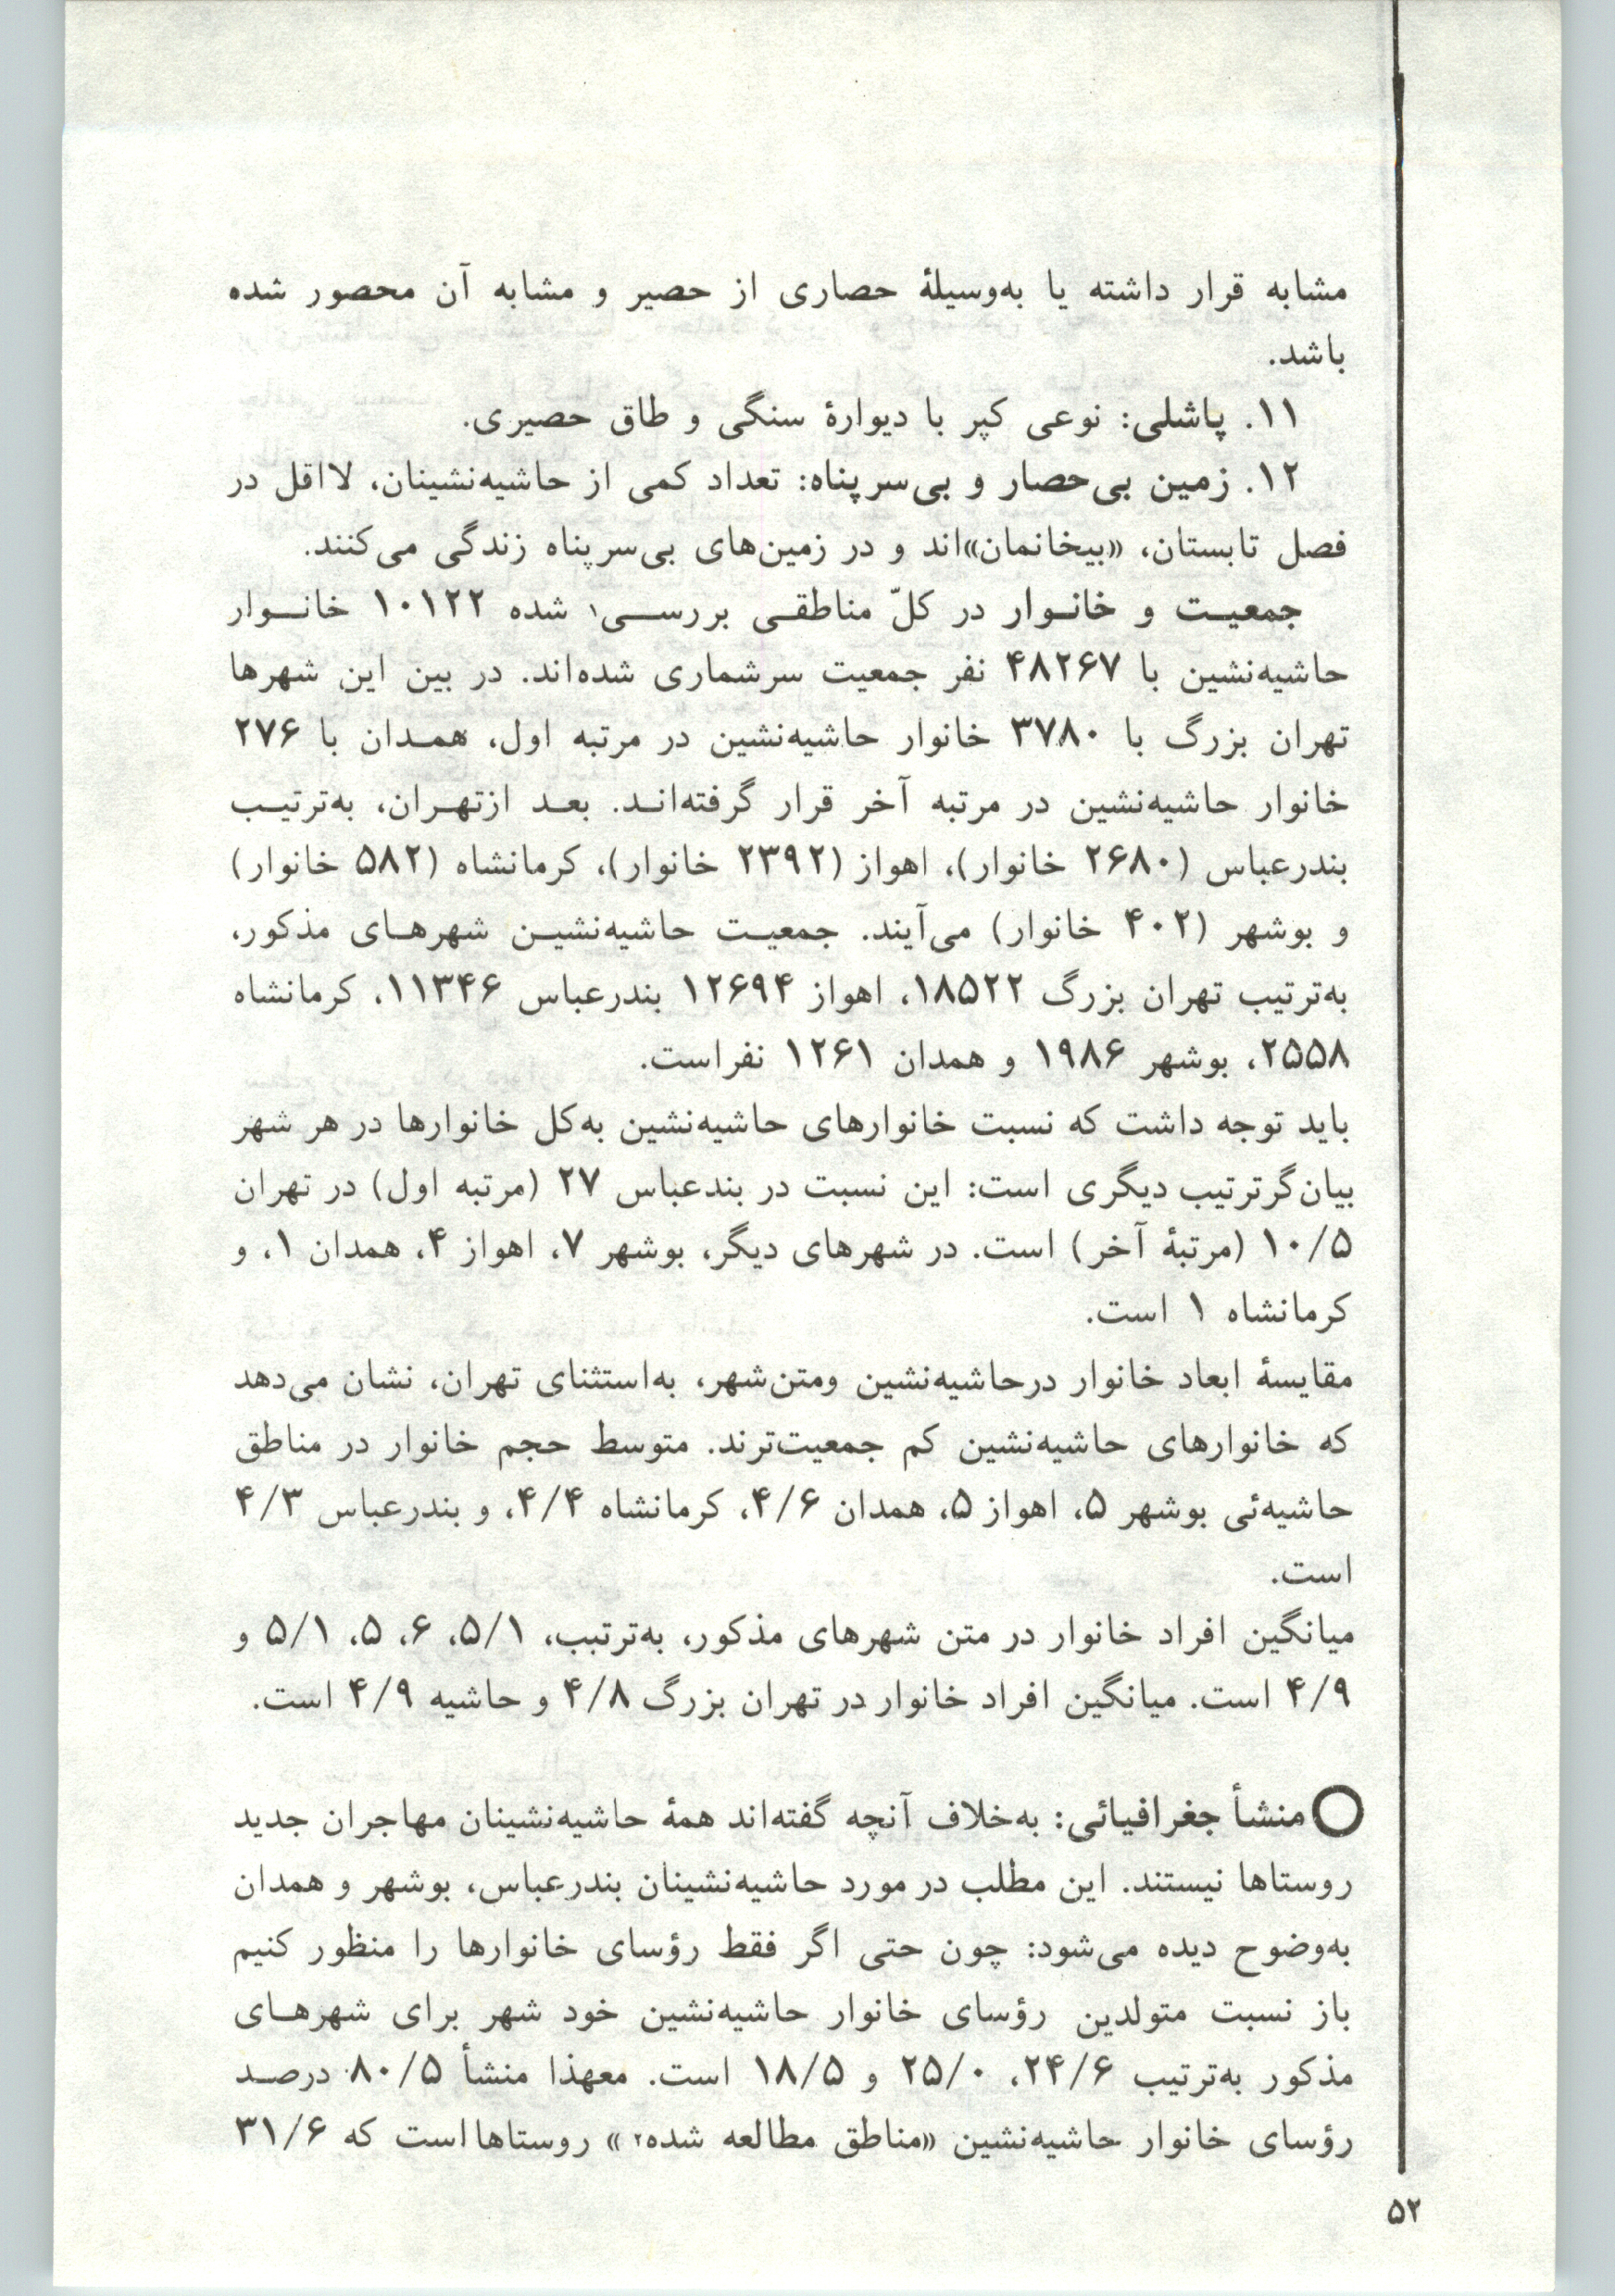 مشابه قرار داشته یا به‌وسیلهٔ حصاری از حصیر و مشابه آن محصور شده
باشد.
۱۱. پاشلی: نوعی کپر با دیوارهٔ سنگی و طاق حصیری.
۱۲. زمین بی‌حصار و بی‌سرپناه: تعداد کمی از حاشیه‌نشینان، لااقل در
فصل تابستان، «بیخانمان»اند و در زمین‌های بی‌سرپناه زندگی می‌کنند.
جمعیت و خانوار در کلّ مناطقی بررسی۱ شده ۱۰۱۲۲ خانوار
حاشیه‌نشین با ۴۸۲۶۷ نفر جمعیت سرشماری شده‌اند. در بین این شهرها
تهران بزرگ با ۳۷۸۰ خانوار حاشیه‌نشین در مرتبه اول، همدان با ۲۷۶
خانوار حاشیه‌نشین در مرتبه آخر قرار گرفته‌اند. بعد ازتهران، به‌ترتیب
بندرعباس (۲۶۸۰ خانوار)، اهواز (۲۳۹۲ خانوار)، کرمانشاه (۵۸۲ خانوار)
و بوشهر (۴۰۲ خانوار) می‌آیند. جمعیت حاشیه‌نشین شهرهای مذکور،
به‌ترتیب تهران بزرگ ۱۸۵۲۲، اهواز ۱۲۶۹۴ بندرعباس ۱۱۳۴۶، کرمانشاه
۲۵۵۸، بوشهر ۱۹۸۶ و همدان ۱۲۶۱ نفراست.
باید توجه داشت که نسبت خانوارهای حاشیه‌نشین به‌کل خانوارها در هر شهر
بیان‌گرترتیب دیگری است: این نسبت در بندعباس ۲۷ (مرتبه اول) در تهران
۱۰/۵ (مرتبهٔ آخر) است. در شهرهای دیگر، بوشهر ۷، اهواز ۴، همدان ۱، و
کرمانشاه ۱ است.
مقایسهٔ ابعاد خانوار درحاشیه‌نشین ومتن‌شهر، به‌استثنای تهران، نشان می‌دهد
که خانوارهای حاشیه‌نشین کم جمعیت‌ترند. متوسط حجم خانوار در مناطق
حاشیه‌ئی بوشهر ۵، اهواز ۵، همدان ۴/۶، کرمانشاه ۴/۴، و بندرعباس ۴/۳
است.
میانگین افراد خانوار در متن شهرهای مذکور، به‌ترتبب، ۵/۱، ۶، ۵، ۵/۱ و
۴/۹ است. میانگین افراد خانوار در تهران بزرگ ۴/۸ و حاشیه ۴/۹ است.
منشأ جغرافیائی: به‌خلاف آنچه گفته‌اند همهٔ حاشیه‌نشینان مهاجران جدید
روستاها نیستند. این مطلب در مورد حاشیه‌نشینان بندرعباس، بوشهر و همدان
به‌وضوح دیده می‌شود: چون حتی اگر فقط رؤسای خانوارها را منظور کنیم
باز نسبت متولدین رؤسای خانوار حاشیه‌نشین خود شهر برای شهرهای
مذکور به‌ترتیب ۲۴/۶، ۲۵/۰ و ۱۸/۵ است. معهذا منشأ ۸۰/۵ درصد
رؤسای خانوار حاشیه‌نشین «مناطق مطالعه شده۲» روستاهااست که ۳۱/۶
۵۲